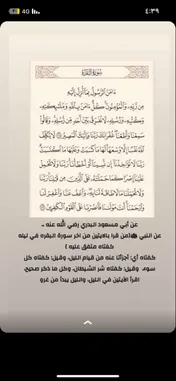 ٤:٣٩
4G
سورة البقرة
ءامن الرسول بما أنزل إليه
من ربه والمؤمنون كل ءامن بالله وملئكته
وكتبه ورسله لا نفرق بين أحد من رسله وقالوا
سمعنا وأطعنا غفرانك ربنا وإليك المصير لا يكلف
الله نفسا إلا وسعها لها ما كسبت وعليها ما اكتسبت
ربنا لا تؤاخذنا إن نسينا أو أخطأنا ربنا ولا تحمل
علينا إصرا كما حملته على الذين من قبلنا ربنا
ولا تحملنا ما لا طاقة لنا به واعف عنا واغفر لنا
وارحمنا أنت مولىنا فانصرنا على القوم الكفرين
عن أبي مسعود البدري رضي الله عنه -
عن النبي ﷺ (من قرا بالايتين من اخر سورة البقره في ليله
كفتاه متفق عليه )
كفتاه أي: أجزأتا عنه من قيام الليل، وقيل: كفتاه كل
سوء، وقيل: كفتاه شر الشيطان، وكل ما ذكر صحيح،
اقرأ الآيتين في الليل، والليل يبدأ من غرو